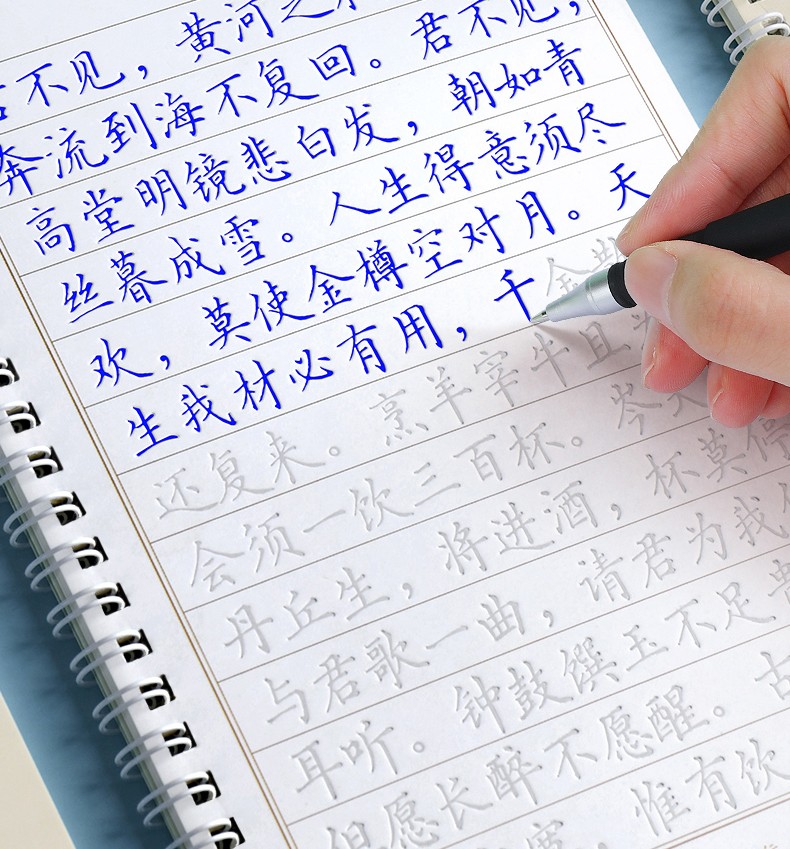 不见，黄河之
奔流到海不复回。君不见，
高堂明镜悲白发，朝如青
丝暮成雪。人生得意须尽
欢，莫使金樽空对月。天
生我材必有用，千金散
还复来。烹羊宰牛且
会须一饮三百杯。岑夫
丹丘生，将进酒，杯莫停
与君歌一曲，请君为我
耳听。钟鼓馔玉不足贵
但愿长醉不愿醒。古
惟有饮